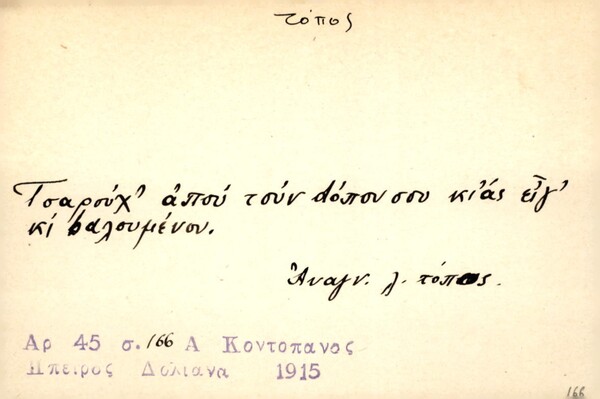 τόπος
Τσαρούχ' ἀπού τούν dόπον σου κι ἄς εἶγ'
κί bαλουμένου.
Ἀναγν. λ. τόπος.
Αρ 45 σ. 166 Α Κοντοπανος
Ηπειρος Δολιανα 1915
166